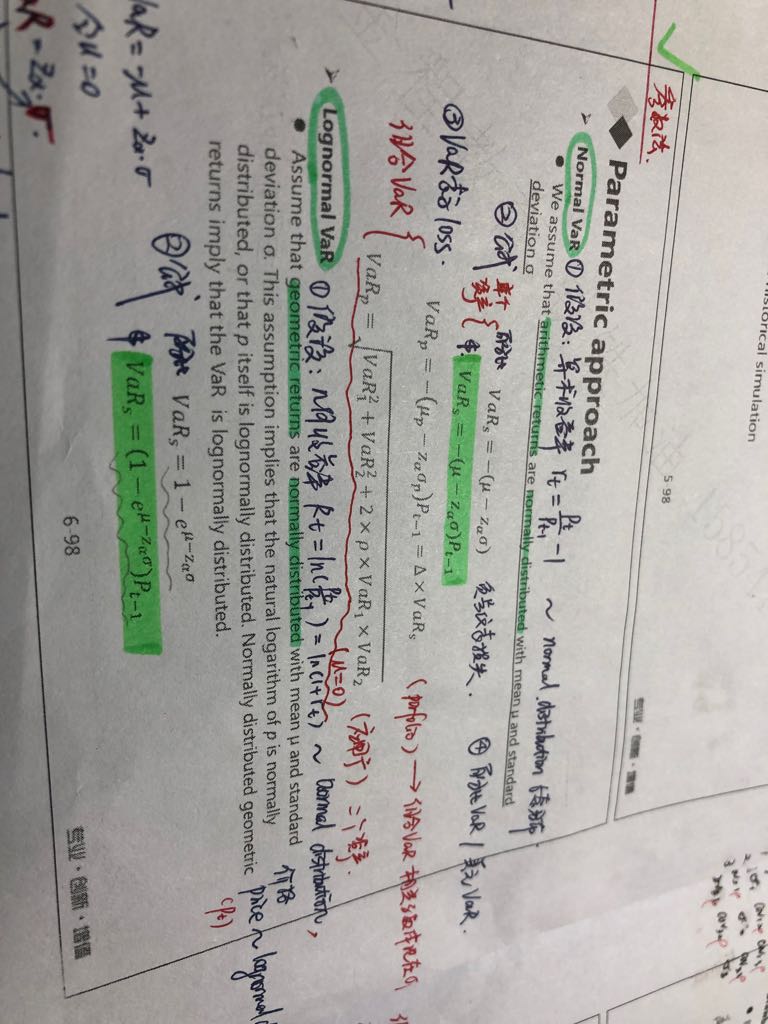 Historical simulation
5-98
专业·创新·增值
参数法.
Parametric approach
Normal VaR ① 假设: 算术收益率 rt = Pt/Pt-1 − 1 ~ normal distribution
We assume that arithmetic returns are normally distributed with mean μ and standard
deviation σ
② 公式 单个资产 { VaRs = −(μ − zασ)
$: VaRs = −(μ − zασ)Pt−1
④ VaR / VaR.
③ VaR表示 loss.
组合VaR {
VaRp = −(μp − zασp)Pt−1 = Δ × VaRs (portfolio) → 组合VaR
VaRp = √(VaR1² + VaR2² + 2 × ρ × VaR1 × VaR2) (μ=0)
Lognormal VaR ① 假设: 几何收益率 Rt = ln(Pt/Pt-1) = ln(1+rt) ~ normal distribution,
Assume that geometric returns are normally distributed with mean μ and standard
deviation σ. This assumption implies that the natural logarithm of p is normally
distributed, or that p itself is lognormally distributed. Normally distributed geometric
returns imply that the VaR is lognormally distributed.
价格 price ~ lognormal
(Pt)
② 公式 { VaRs = 1 − e^μ−zασ
$ VaRs = (1 − e^μ−zασ)Pt−1
6-98
专业·创新·增值
VaR = -μ + Zα·σ
令μ=0
VaR = Zα·σ.